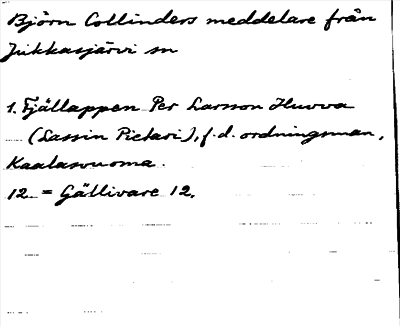 Björn Collinders meddelare från
Jukkasjärvi sn
1. Fjällappen Per Larsson Huuva
(Lassin Pietari), f.d. ordningsman,
Kaalasvuoma.
12 = Gällivare 12.